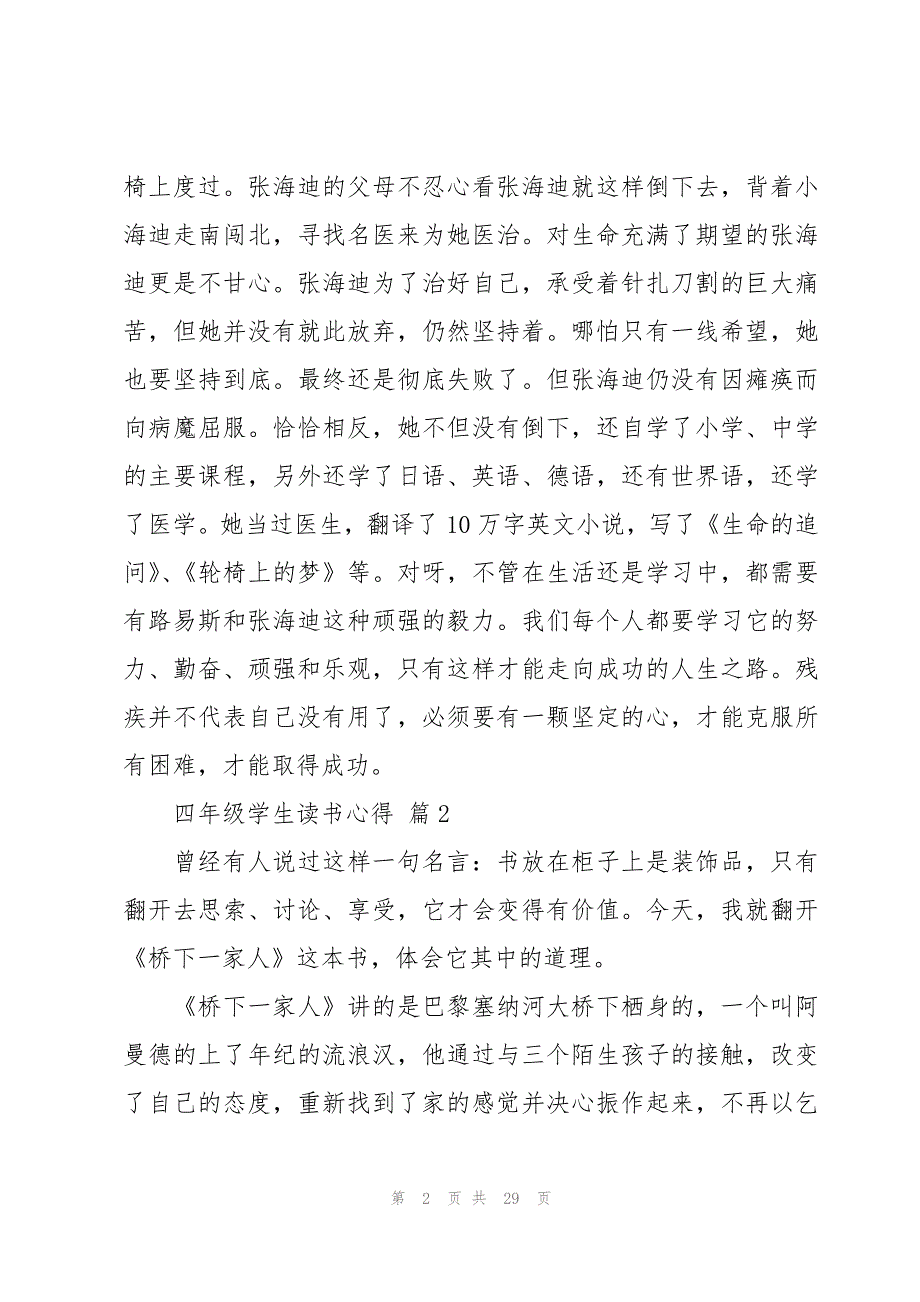 椅上度过。张海迪的父母不忍心看张海迪就这样倒下去，背着小
海迪走南闯北，寻找名医来为她医治。对生命充满了期望的张海
迪更是不甘心。张海迪为了治好自己，承受着针扎刀割的巨大痛
苦，但她并没有就此放弃，仍然坚持着。哪怕只有一线希望，她
也要坚持到底。最终还是彻底失败了。但张海迪仍没有因瘫痪而
向病魔屈服。恰恰相反，她不但没有倒下，还自学了小学、中学
的主要课程，另外还学了日语、英语、德语，还有世界语，还学
了医学。她当过医生，翻译了 10 万字英文小说，写了《生命的追
问》、《轮椅上的梦》等。对呀，不管在生活还是学习中，都需要
有路易斯和张海迪这种顽强的毅力。我们每个人都要学习它的努
力、勤奋、顽强和乐观，只有这样才能走向成功的人生之路。残
疾并不代表自己没有用了，必须要有一颗坚定的心，才能克服所
有困难，才能取得成功。
四年级学生读书心得 篇 2
曾经有人说过这样一句名言：书放在柜子上是装饰品，只有
翻开去思索、讨论、享受，它才会变得有价值。今天，我就翻开
《桥下一家人》这本书，体会它其中的道理。
《桥下一家人》讲的是巴黎塞纳河大桥下栖身的，一个叫阿
曼德的上了年纪的流浪汉，他通过与三个陌生孩子的接触，改变
了自己的态度，重新找到了家的感觉并决心振作起来，不再以乞
第 2 页 共 29 页